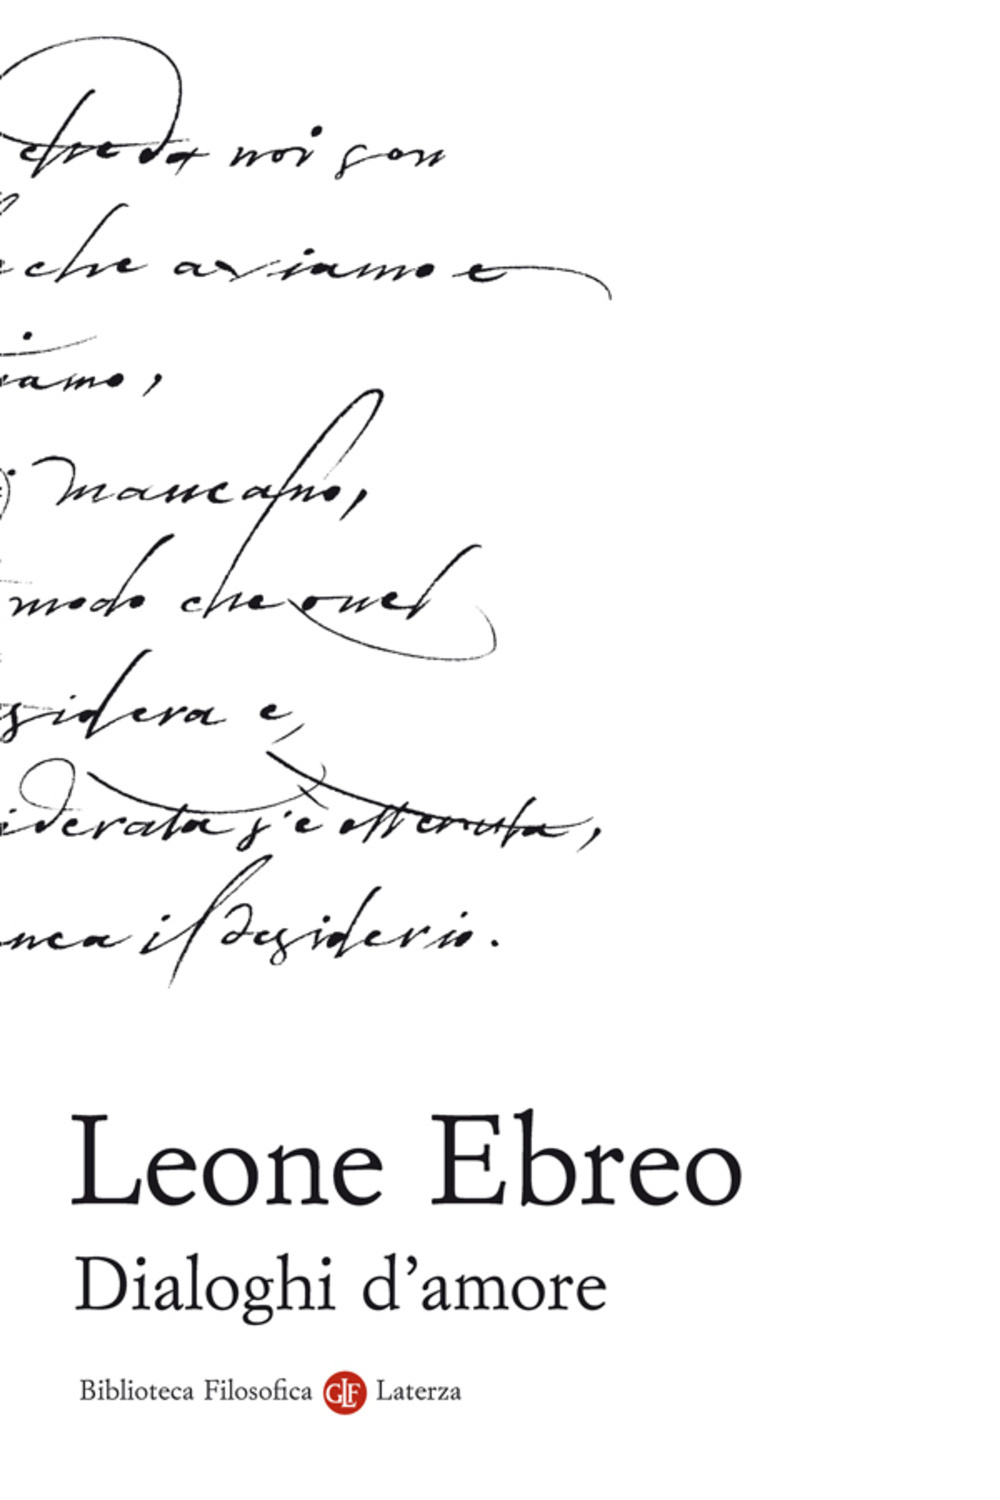 che da noi son
e che aviamo e
iamo,
i mancano,
modo che quel
sidera e,
iderata s'è ottenuta,
nca il desiderio.
Leone Ebreo
Dialoghi d'amore
Biblioteca Filosofica GLF Laterza